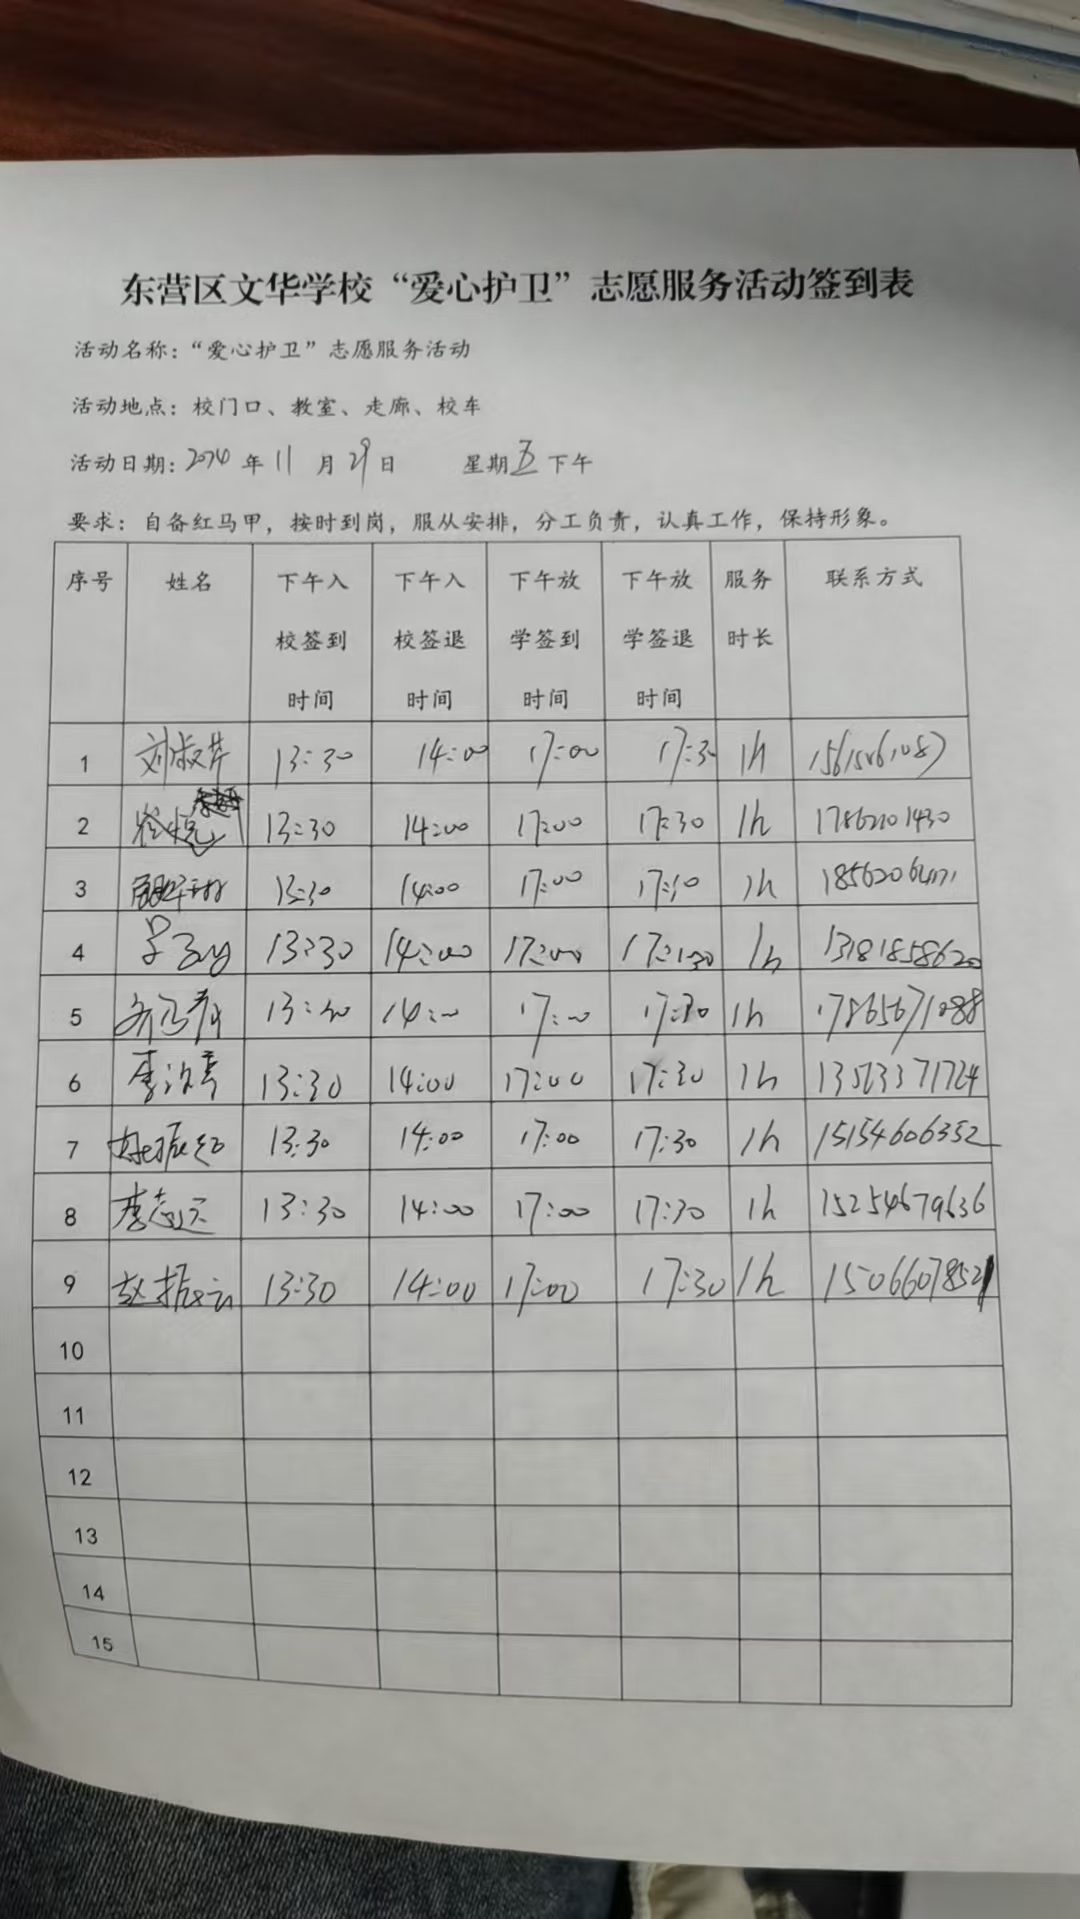 东营区文华学校“爱心护卫”志愿服务活动签到表
活动名称：“爱心护卫”志愿服务活动
活动地点：校门口、教室、走廊、校车
活动日期：2024年11月29日 星期五下午
要求：自备红马甲，按时到岗，服从安排，分工负责，认真工作，保持形象。
序号 姓名 下午入校签到时间 下午入校签退时间 下午放学签到时间 下午放学签退时间 服务时长 联系方式
1 刘淑芹 13:30 14:00 17:00 17:30 1h
2 13:30 14:00 17:00 17:30 1h 17862101430
3 13:30 14:00 17:00 17:30 1h
4 13:30 14:00 17:00 17:30 1h 13181858620
5 13:30 14:00 17:00 17:30 1h 17865671088
6 13:30 14:00 17:00 17:30 1h 13563371724
7 13:30 14:00 17:00 17:30 1h 15154606352
8 李志远 13:30 14:00 17:00 17:30 1h 15254679636
9 赵振云 13:30 14:00 17:00 17:30 1h 15066078521
10
11
12
13
14
15